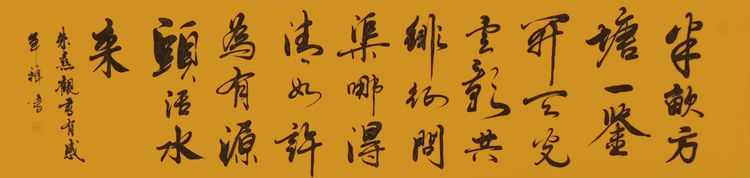 半畝方
塘一鑒
开天光
云影共
徘徊問
渠哪得
清如許
為有源
頭活水
来
朱熹觀書有感
書